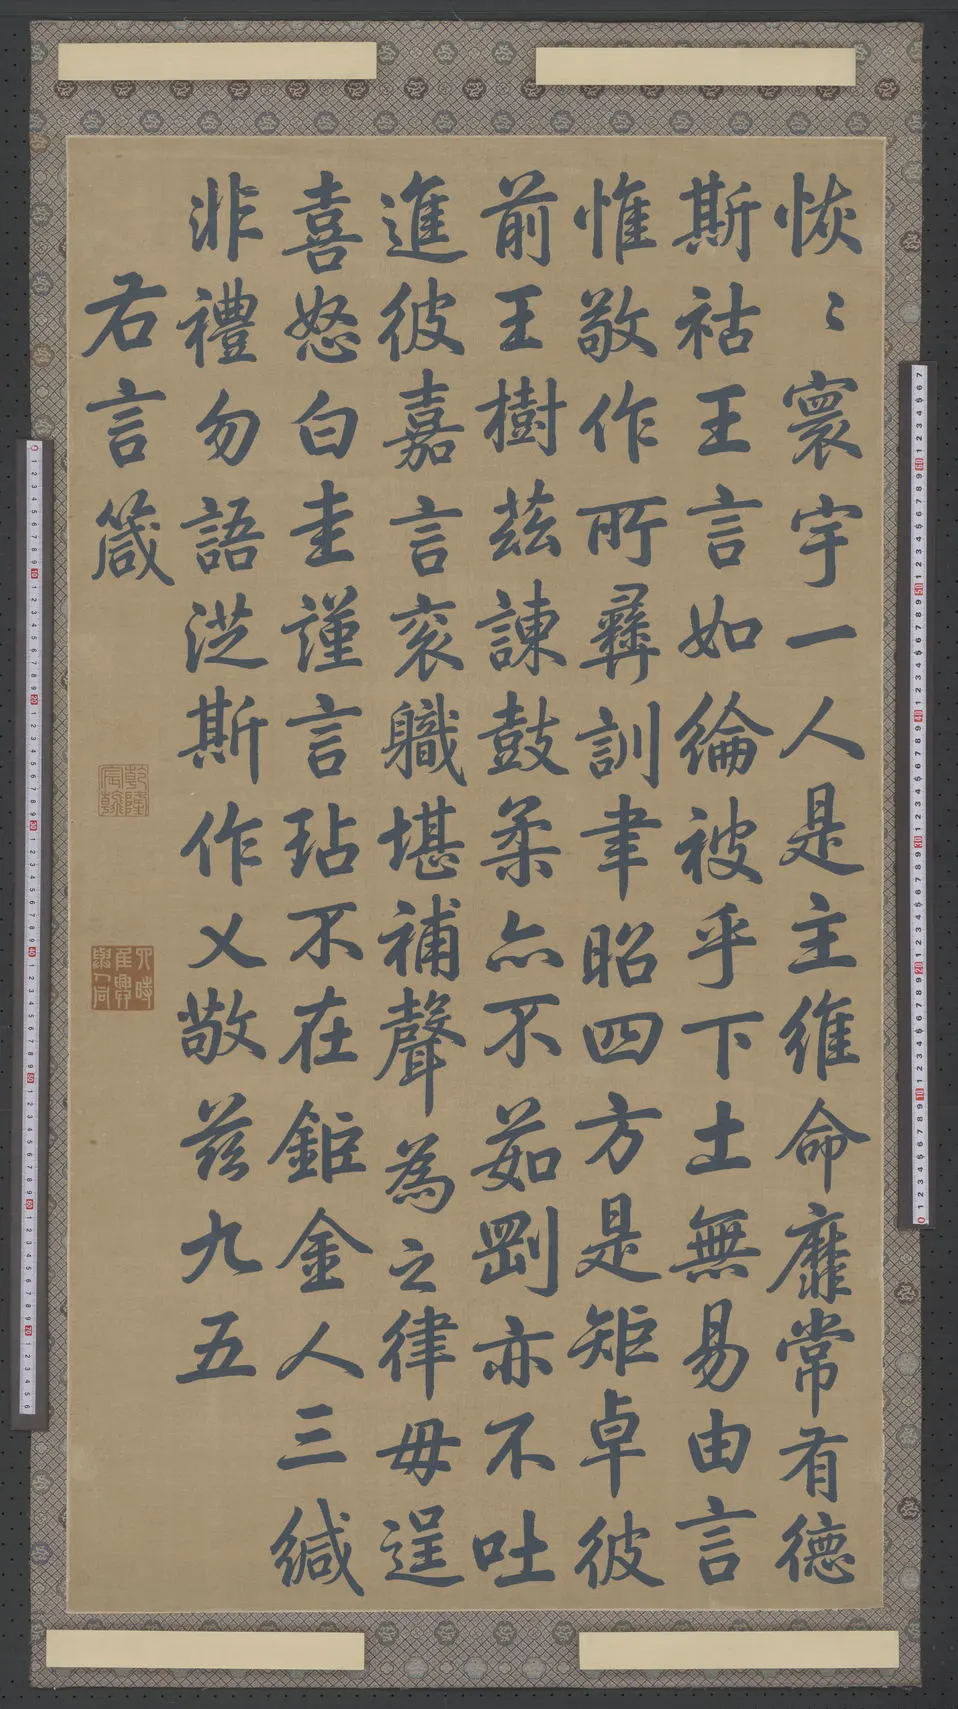 恢〻寰宇一人是主維命靡常有德
斯祜王言如綸被乎下土無易由言
惟敬作所彞訓聿昭四方是矩卓彼
前王樹茲諫鼓柔亦不茹剛亦不吐
進彼嘉言袞職堪補聲為之律毋逞
喜怒白圭謹言玷不在鉅金人三緘
非禮勿語涖斯作乂敬茲九五
右言箴
乾隆宸翰
四時佳興與人同